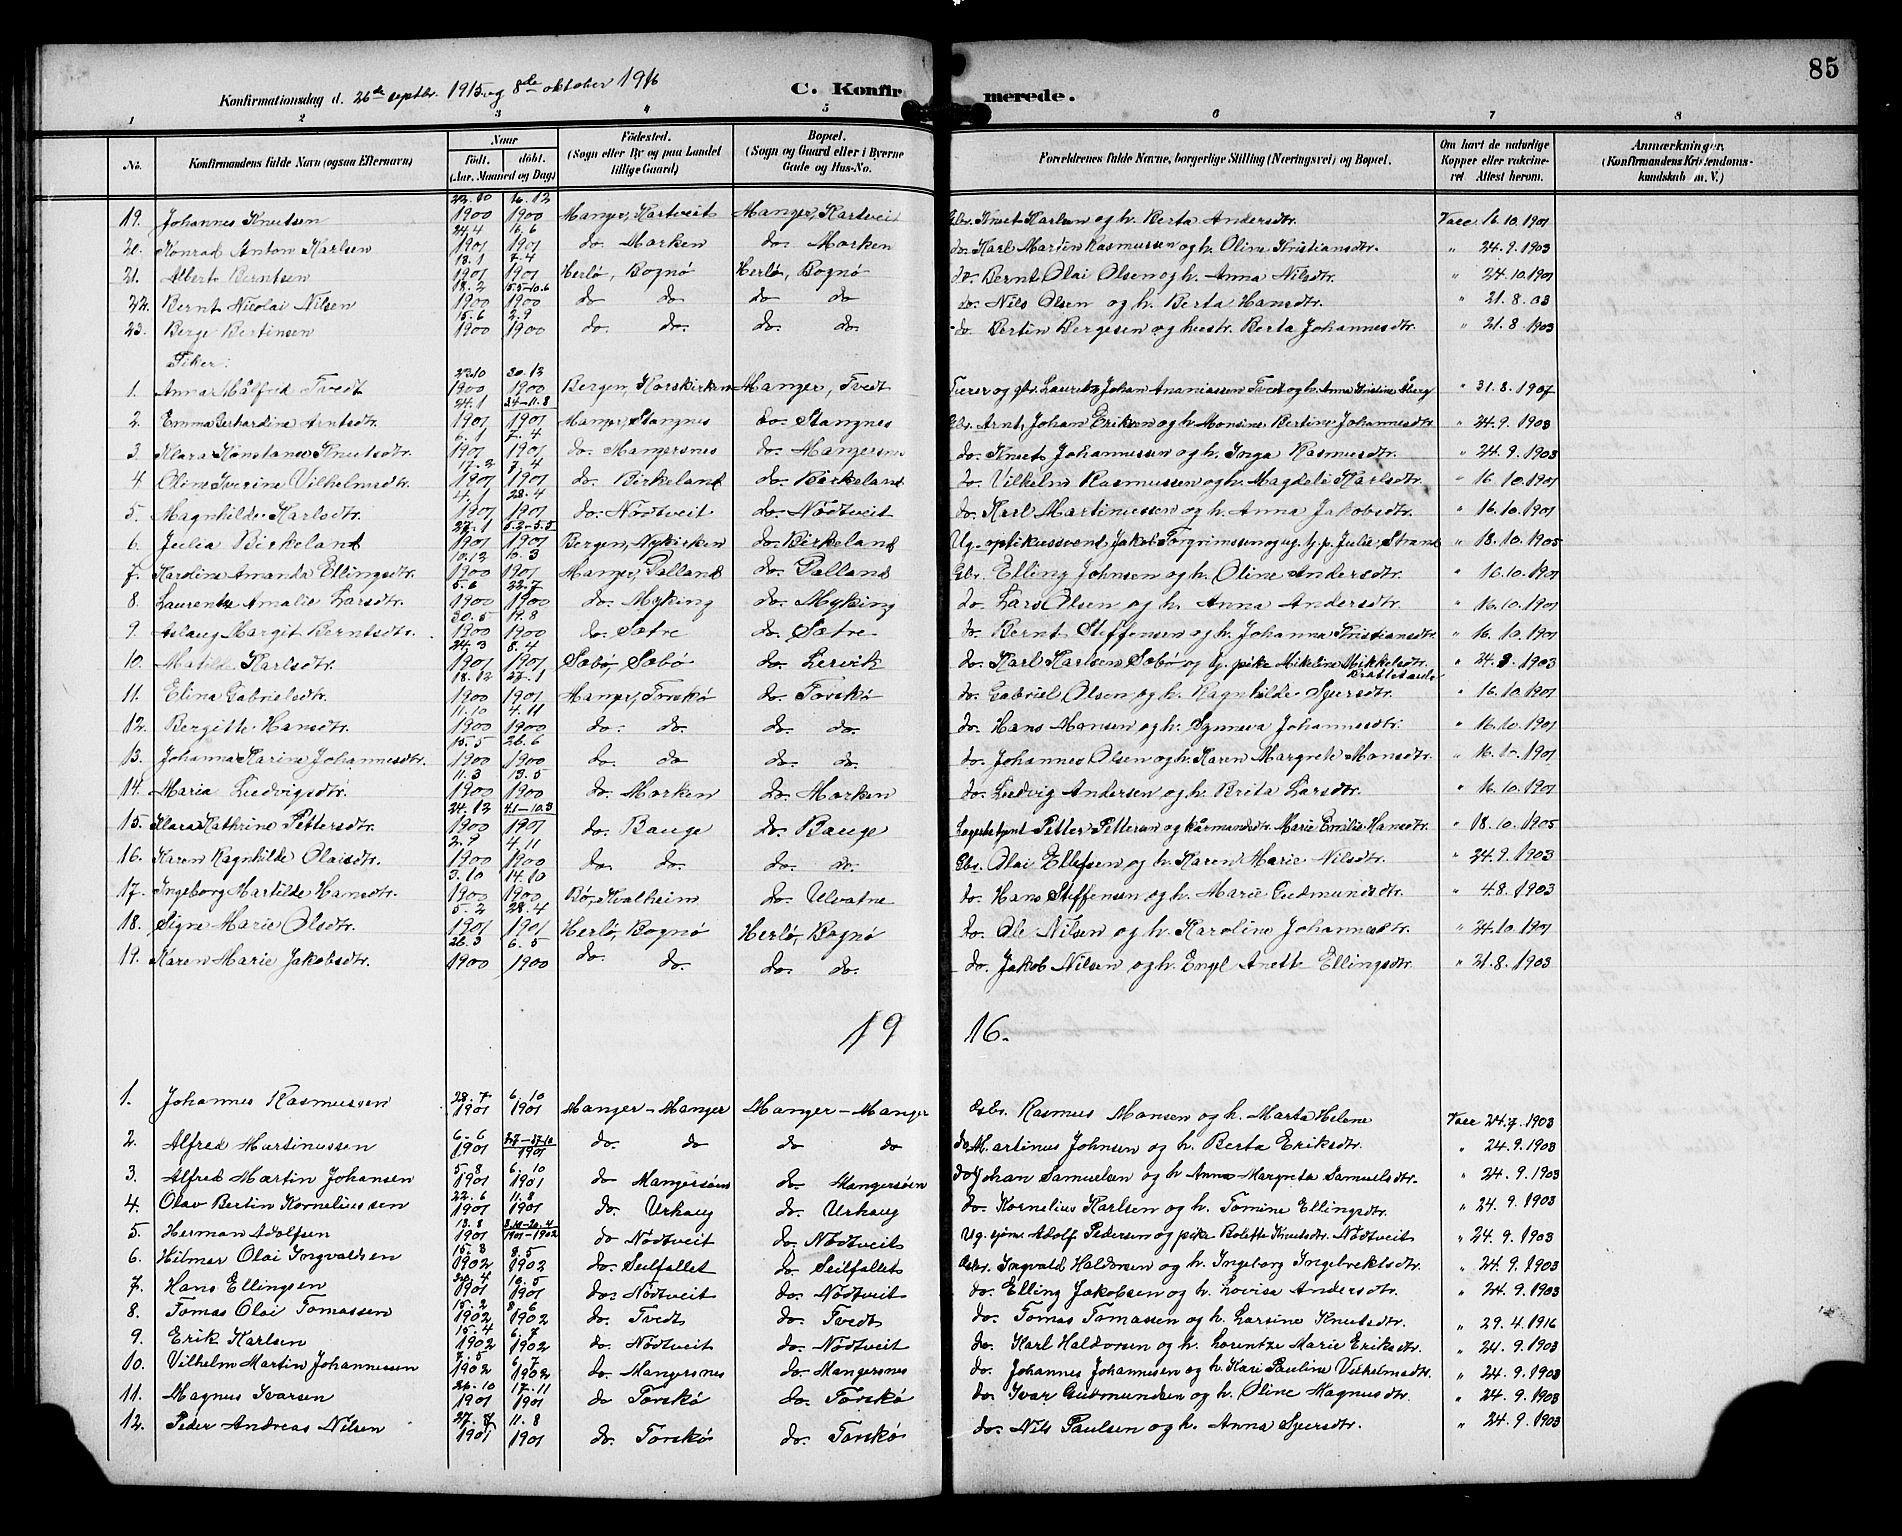 85
Konfirmationsdag d. 26de septbr. 1915 og 8de oktober 1916 C. Konfirmerede.
1 2 3 4 5 6 7 8
No. Konfirmandens fulde Navn (ogsaa Efternavn) Naar födt. döbt. (Aar, Maaned og Dag) Födested. (Sogn eller By og paa Landet tillige Gaard) Bopæl. (Sogn og Gaard eller i Byerne Gade og Hus-No. Forældrenes fulde Navne, borgerlige Stilling (Næringsvei) og Bopæl. Om havt de naturlige Kopper eller vaccineret. Attest herom. Anmærkninger. (Konfirmandens Kristendomskundskab m. V.)
19. Johannes Knutsen 22.10 1900 16.12 1900 Manger, Kartveit Manger, Kartveit Gbr. Knut Karlsen og h. Berta Andersdtr. Vacc. 16.10.1901
20. Konrad Anton Karlsen 24.4 1901 16.6 1901 do. Marken do. Marken do. Karl Martin Rasmussen og h. Oline Kristiansdtr. " 24.9.1903
21. Albert Berntsen 13.1 1901 7.4 1901 Herlø, Bognø Herlø, Bognø do. Bernt Olai Olsen og h. Anna Nilsdtr. " 24.10.1901
22. Bernt Nicolai Nilsen 18.2 1900 5.5-10.6 1900 do do do do do. Nils Olsen og h. Berta Hansdtr. " 21.8.03
23. Berge Bertinsen 15.6 1900 2.9 1900 do. do. do. do. do. Bertin Bergesen og hustr. Berta Johannesdtr. " 21.8.1903
Piker:
1. Anna Målfred Tvedt 22.10 1900 30.12 1900 Bergen, Korskirken Manger, Tvedt Lauretz Johan Ananiassen Tvedt og h. Anna Kristine Åberg " 31.8.1907
2. Emma Gerhardine Arntsdtr. 24.1 1901 1901 Manger, Stangnes do. Stangnes Gbr. Arnt Johan Eriksen og h. Monsine Bertine Johannesdtr. " 24.9.1903
3. Klara Konstanse Knutsdtr. 6.1 1901 7.4 1901 do. Mangersnes do. Mangersnes do. Knut Johannessen og h. Inga Rasmusdtr. " 24.9.1903
4. Oline Iverine Vilhelmsdtr. 17.2 1901 7.4 1901 do. Birkeland do. Birkeland do. Vilhelm Rasmussen og h. Magdeli Karlsdtr. " 16.10.1901
5. Magnhilde Karlsdtr. 4.1 1901 28.4 1901 do. Nödtveit do. Nödtveit do. Karl Martinussen og h. Anna Jakobsdtr. " 16.10.1901
6. Julia Birkeland 27.1 1901 5.2-5.5 1901 Bergen, Nykirken do. Birkeland Ug. optikussvend Jakob Torgrimsen og ug. tj.p. Julie Strand " 18.10.1905
7. Karoline Amanda Ellingsdtr. 10.12 1900 10.3 1901 Manger, Palland do. Palland Gbr. Elling Johnsen og h. Oline Andersdtr. " 16.10.1901
8. Laurentze Amalie Larsdtr. 5.6 1900 22.7 1900 do. Myking do. Myking do. Lars Olsen og h. Anna Andersdtr. " 16.10.1901
9. Aslaug Margit Berntsdtr. 30.5 1900 19.8 1900 do. Sætre do. Sætre do. Bernt Steffensen og h. Johanna Kristiansdtr. " 16.10.1901
10. Matilde Karlsdtr. 24.3 1901 8.4 1901 Sæbø, Sæbø do. Lervik do. Karl Karlsen Sæbø og tj. pike Mikeline Mikkelsdtr. Brattetaule " 24.9.1903
11. Elina Gabrielsdtr. 18.12 1900 27.1 1901 Manger, Torskø do. Torskø do. Gabriel Olsen og h. Ragnhilde Sjursdtr. " 16.10.1901
12. Bergitte Hansdtr. 11.10 1900 4.11 1900 do. do. do. do. do. Hans Monsen og h. Synneva Johannesdtr. " 16.10.1901
13. Johanna Karine Johannesdtr. 15.5 1900 26.6 1900 do. do do. do. do. Johannes Olsen og h. Karen Margrete Monsdtr. " 16.10.1901
14. Maria Ludvigsdtr. 11.3 1900 13.5 1900 do. Marken do. Marken do. Ludvig Andersen og h. Brita Larsdtr. " 16.10.1901
15. Klara Kathrine Pettersdtr. 24.12 1900 4.1-10.3 1901 do. Bauge do. Bauge Petter Pettersen og kårmandsdtr. Marie Emilie Hansdtr. " 18.10.1905
16. Karen Ragnhilde Olaisdtr. 2.9 1900 4.11 1900 do. do. do. do. Gbr. Olai Ellefsen og h. Karen Marie Nilsdtr. " 24.9.1903
17. Ingeborg Martilde Hansdtr. 3.10 1900 14.10 1900 Bø, Kvalheim do. Ulvatne do. Hans Steffensen og h. Marie Gudmundsdtr. " 4.8.1903
18. Signe Marie Olsdtr. 5.2 1901 28.4 1901 Herlø, Bognø Herlø, Bognø do. Ole Nilsen og h. Karoline Johannesdtr. " 24.10.1901
19. Karen Marie Jakobsdtr. 26.3 1900 6.5 1900 do. do. do. do. do. Jakob Nilsen og h. Engel Anette Ellingsdtr. " 21.8.1903
1916.
1. Johannes Rasmussen 28.7 1901 6.10 1901 Manger - Manger Manger - Manger Gbr. Rasmus Monsen og h. Marta Helene Vacc 24.7.1903
2. Alfred Martinussen 6.6 1901 1901 do do do do do. Martinus Johnsen og h. Berta Eriksdtr. " 24.9.1903
3. Alfred Martin Johansen 5.8 1901 6.10 1901 do Mangersøen do. Mangersøen do Johan Samuelsen og h Anna Margreta Samuelsdtr. " 24.9.1903
4. Olav Bertin Korneliussen 22.6 1901 11.8 1901 do. Urhaug do. Urhaug do. Kornelius Karlsen og h. Tomine Ellingsdtr. " 24.9.1903
5. Herman Adolfsen 13.8 1901 1901-1902 do Nödtveit do. Nödtveit Ug. sjöm. Adolf Pedersen og pike Bolette Knutsdtr. Nödtveit " 24.9.1903
6. Hilmer Olai Ingvaldsen 15.3 1902 8.5 1902 do. Seilfallet do. Seilfallet Gbr. Ingvald Haldorsen og h. Ingeborg Ingebrektsdtr. " 24.9.1903
7. Hans Ellingsen 1901 10.5 1901 do. Nödtveit do. Nödtveit do. Elling Jakobsen og h. Lovise Andersdtr. " 24.9.1903
8. Tomas Olai Tomassen 15.2 1902 8.6 1902 do. Tvedt do. Tvedt do. Tomas Tomassen og h. Larsine Knutsdtr. " 29.4.1916
9. Erik Karlsen 15.4 1902 6.7 1902 do. Nödtveit do. Nödtveit do. Karl Haldorsen og h. Lorentze Marie Eriksdtr. " 24.9.1903
10. Vilhelm Martin Johannessen 7.5 1902 6.7 1902 do. Mangersnes do. Mangersnes do. Johannes Johannesen og h. Kari Pauline Vilhelmsdtr. " 24.9.1903
11. Magnus Ivarsen 22.10 1901 17.11 1901 do. Torskø do. Torskø do. Ivar Gudmundsen og h. Oline Magnusdtr. " 24.9.1903
12. Peder Andreas Nilsen 27.7 1901 11.8 1901 do. Torskø do. Torskø do. Nils Paulsen og h. Anna Sjursdtr. " 24.9.1903